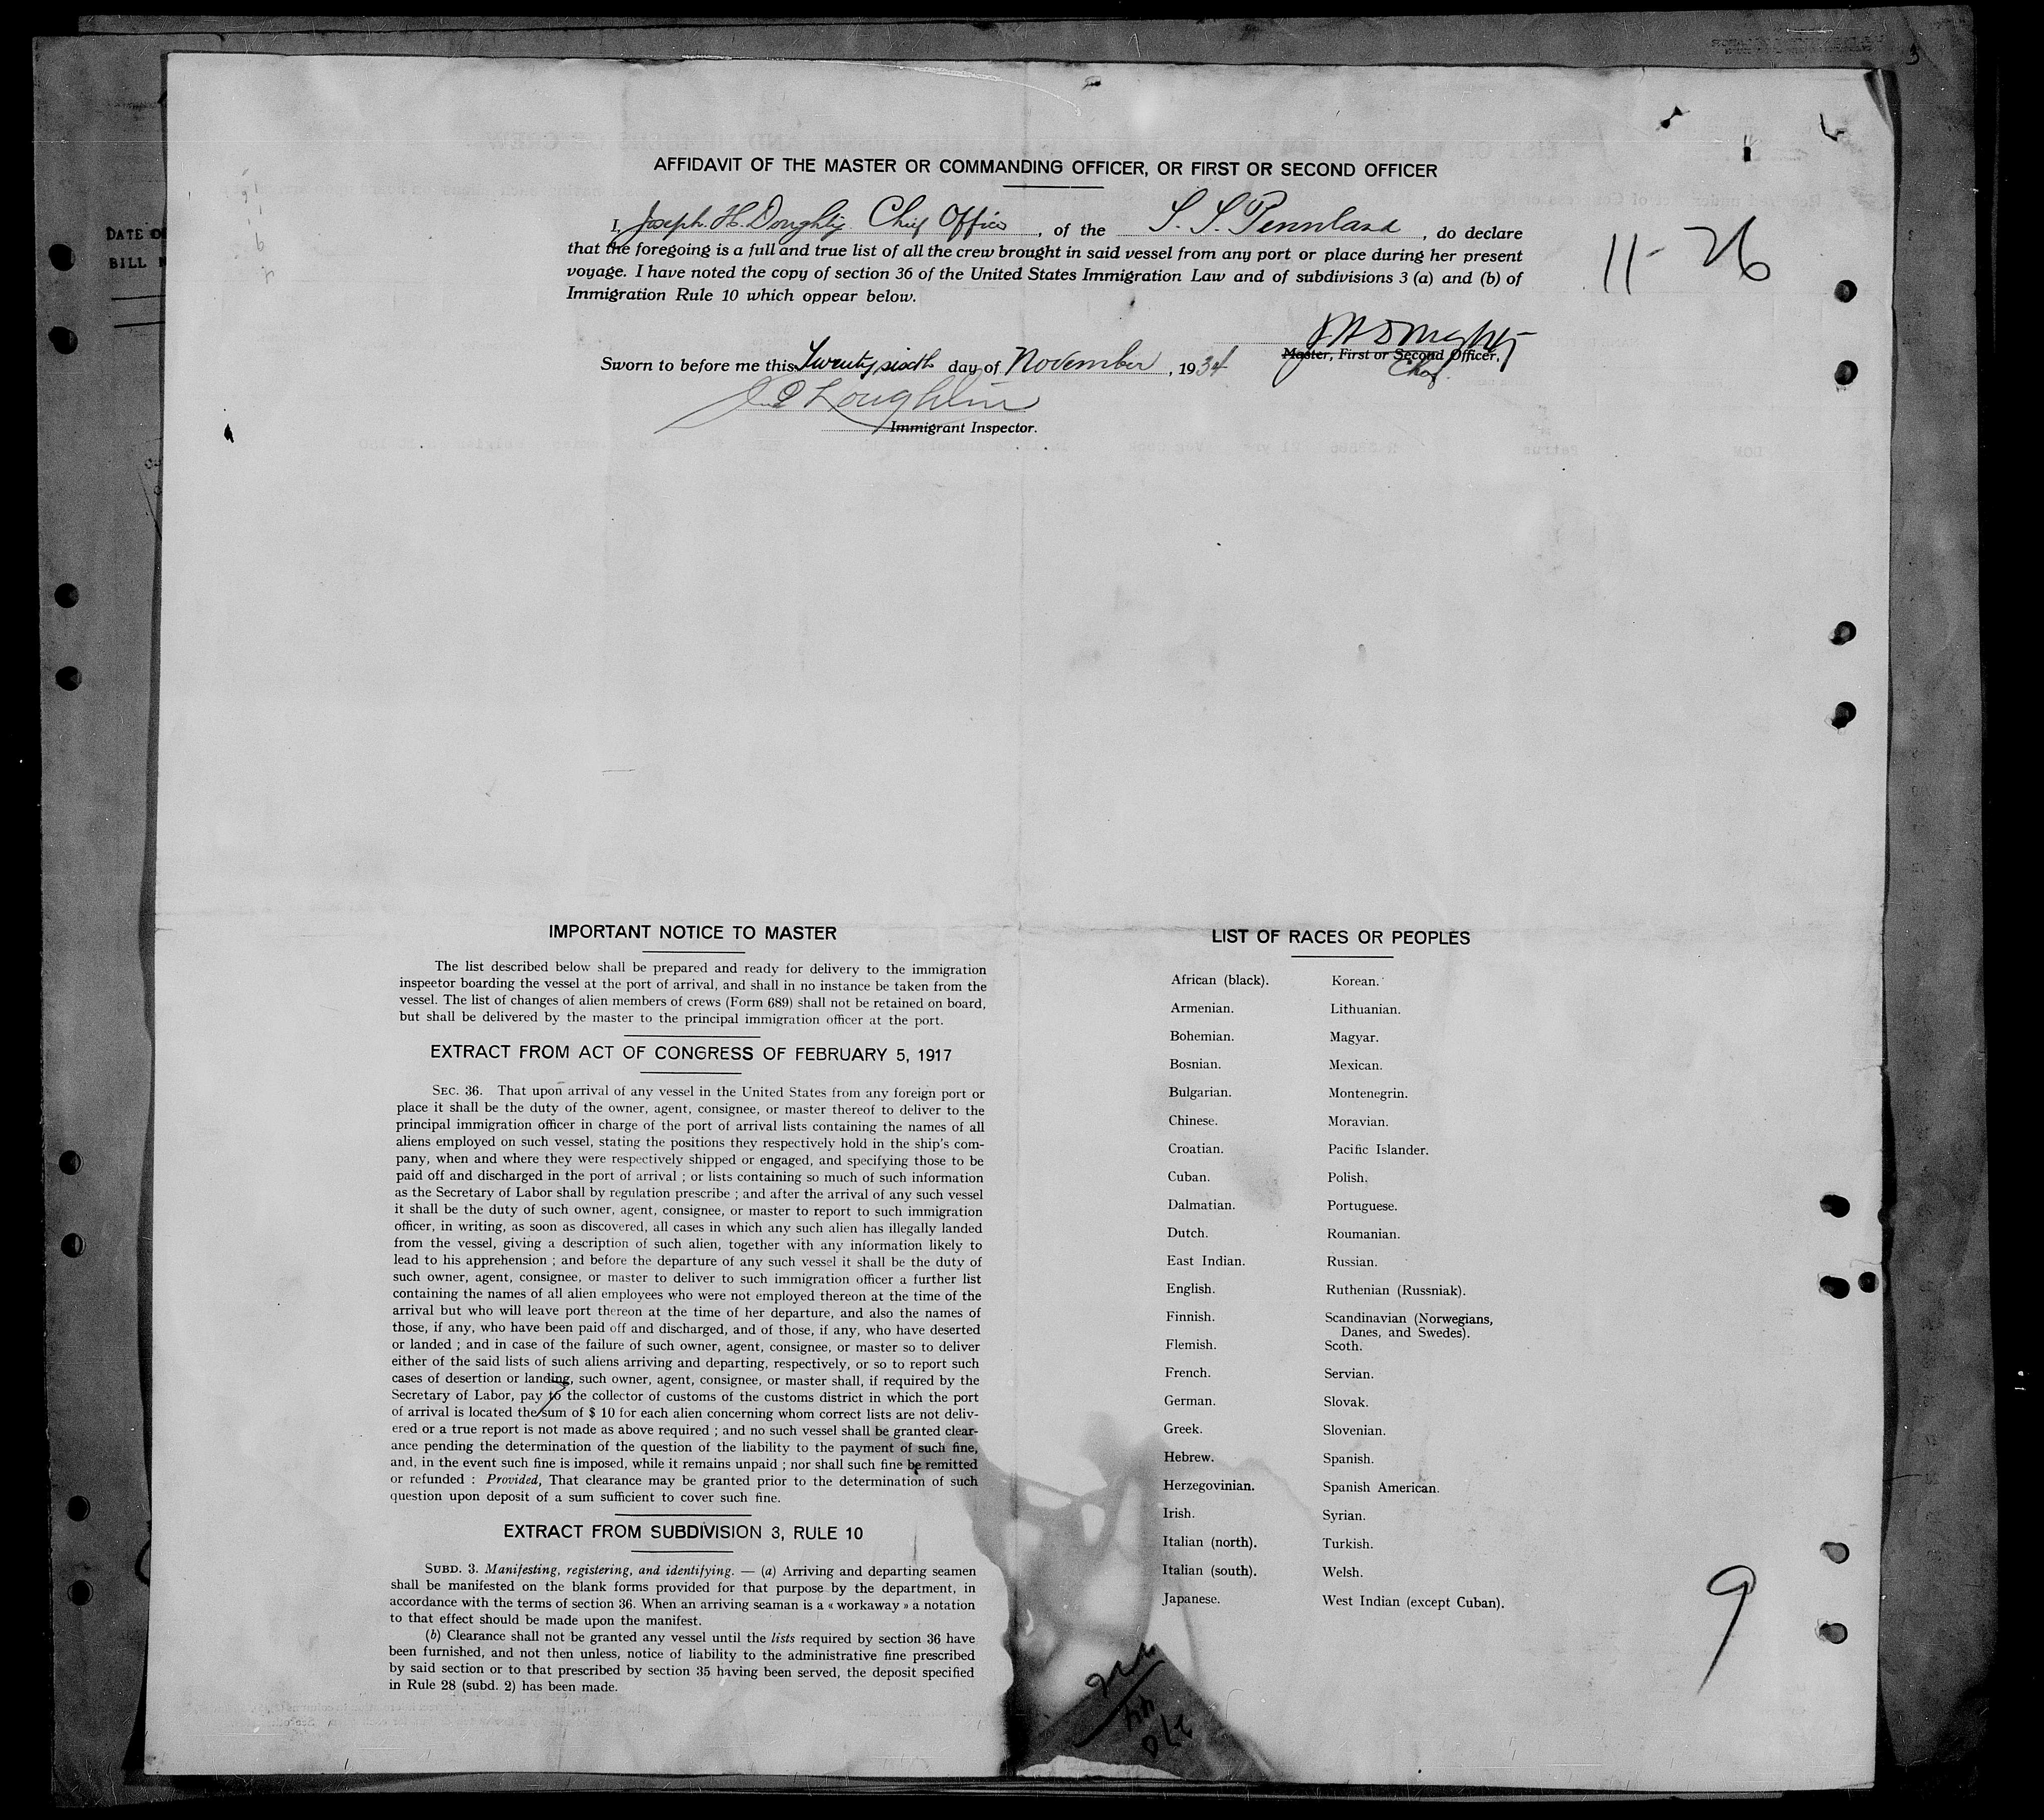 AFFIDAVIT OF THE MASTER OR COMMANDING OFFICER, OR FIRST OR SECOND OFFICER
I, Joseph H. Doughty Chief Officer, of the S. S. Pennland, do declare
that the foregoing is a full and true list of all the crew brought in said vessel from any port or place during her present
voyage. I have noted the copy of section 36 of the United States Immigration Law and of subdivisions 3 (a) and (b) of
Immigration Rule 10 which oppear below.
11-26
J H Doughty
Master, First or Second Officer.
Chief
Sworn to before me this Twenty sixth day of November, 1934
Loughlin
Immigrant Inspector.
DATE O
BILL
IMPORTANT NOTICE TO MASTER
The list described below shall be prepared and ready for delivery to the immigration
inspeetor boarding the vessel at the port of arrival, and shall in no instance be taken from the
vessel. The list of changes of alien members of crews (Form 689) shall not be retained on board,
but shall be delivered by the master to the principal immigration officer at the port.
EXTRACT FROM ACT OF CONGRESS OF FEBRUARY 5, 1917
SEC. 36. That upon arrival of any vessel in the United States from any foreign port or
place it shall be the duty of the owner, agent, consignee, or master thereof to deliver to the
principal immigration officer in charge of the port of arrival lists containing the names of all
aliens employed on such vessel, stating the positions they respectively hold in the ship's com-
pany, when and where they were respectively shipped or engaged, and specifying those to be
paid off and discharged in the port of arrival ; or lists containing so much of such information
as the Secretary of Labor shall by regulation prescribe ; and after the arrival of any such vessel
it shall be the duty of such owner, agent, consignee, or master to report to such immigration
officer, in writing, as soon as discovered, all cases in which any such alien has illegally landed
from the vessel, giving a description of such alien, together with any information likely to
lead to his apprehension ; and before the departure of any such vessel it shall be the duty of
such owner, agent, consignee, or master to deliver to such immigration officer a further list
containing the names of all alien employees who were not employed thereon at the time of the
arrival but who will leave port thereon at the time of her departure, and also the names of
those, if any, who have been paid off and discharged, and of those, if any, who have deserted
or landed ; and in case of the failure of such owner, agent, consignee, or master so to deliver
either of the said lists of such aliens arriving and departing, respectively, or so to report such
cases of desertion or landing, such owner, agent, consignee, or master shall, if required by the
Secretary of Labor, pay to the collector of customs of the customs district in which the port
of arrival is located the sum of $ 10 for each alien concerning whom correct lists are not deliv-
ered or a true report is not made as above required ; and no such vessel shall be granted clear-
ance pending the determination of the question of the liability to the payment of such fine,
and, in the event such fine is imposed, while it remains unpaid ; nor shall such fine be remitted
or refunded : Provided, That clearance may be granted prior to the determination of such
question upon deposit of a sum sufficient to cover such fine.
EXTRACT FROM SUBDIVISION 3, RULE 10
SUBD. 3. Manifesting, registering, and identifying. — (a) Arriving and departing seamen
shall be manifested on the blank forms provided for that purpose by the department, in
accordance with the terms of section 36. When an arriving seaman is a « workaway » a notation
to that effect should be made upon the manifest.
(b) Clearance shall not be granted any vessel until the lists required by section 36 have
been furnished, and not then unless, notice of liability to the administrative fine prescribed
by said section or to that prescribed by section 35 having been served, the deposit specified
in Rule 28 (subd. 2) has been made.
LIST OF RACES OR PEOPLES
African (black). Korean.
Armenian. Lithuanian.
Bohemian. Magyar.
Bosnian. Mexican.
Bulgarian. Montenegrin.
Chinese. Moravian.
Croatian. Pacific Islander.
Cuban. Polish.
Dalmatian. Portuguese.
Dutch. Roumanian.
East Indian. Russian.
English. Ruthenian (Russniak).
Finnish. Scandinavian (Norwegians,
Danes, and Swedes).
Flemish. Scoth.
French. Servian.
German. Slovak.
Greek. Slovenian.
Hebrew. Spanish.
Herzegovinian. Spanish American.
Irish. Syrian.
Italian (north). Turkish.
Italian (south). Welsh.
Japanese. West Indian (except Cuban).
9